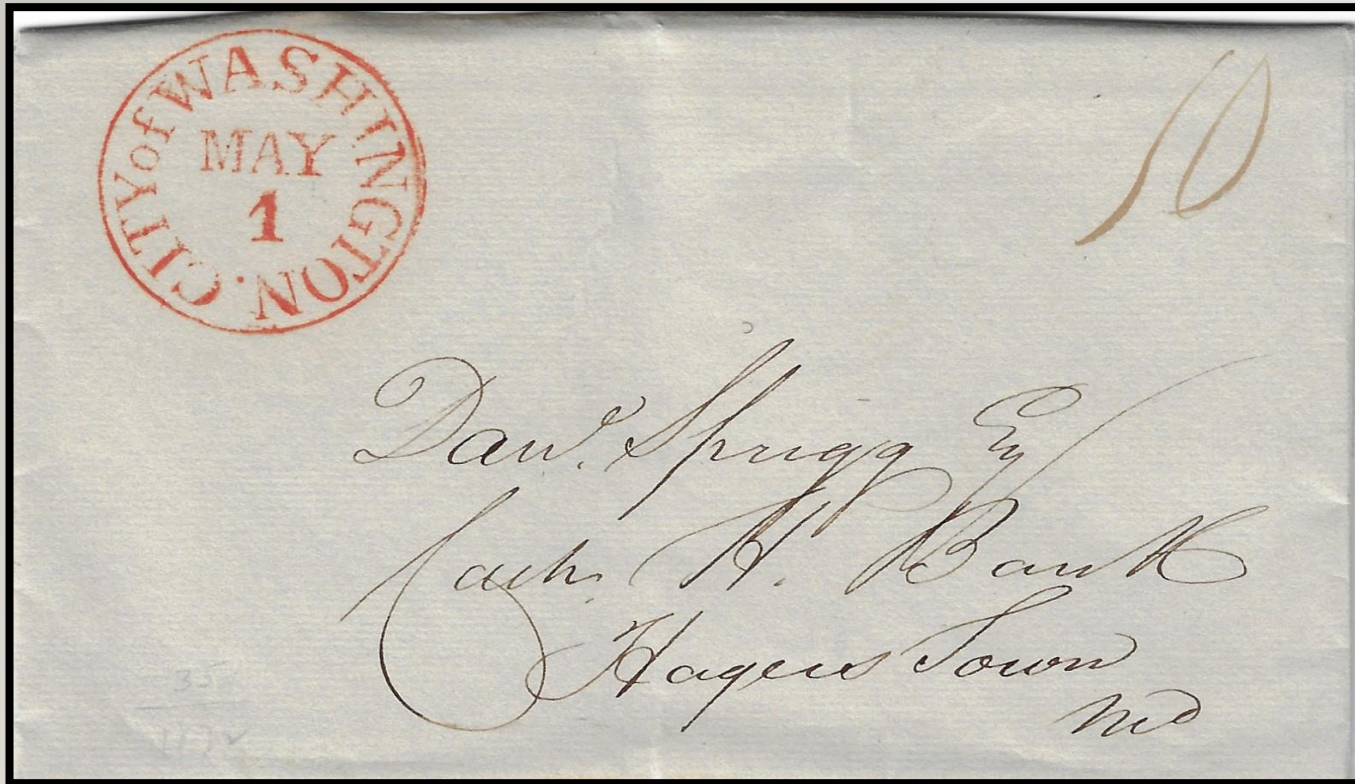 CITY of WASHINGTON.
MAY
1
10
Danl. Sprigg Esq
Cashr. H. Bank
Hagers Town
Md
35